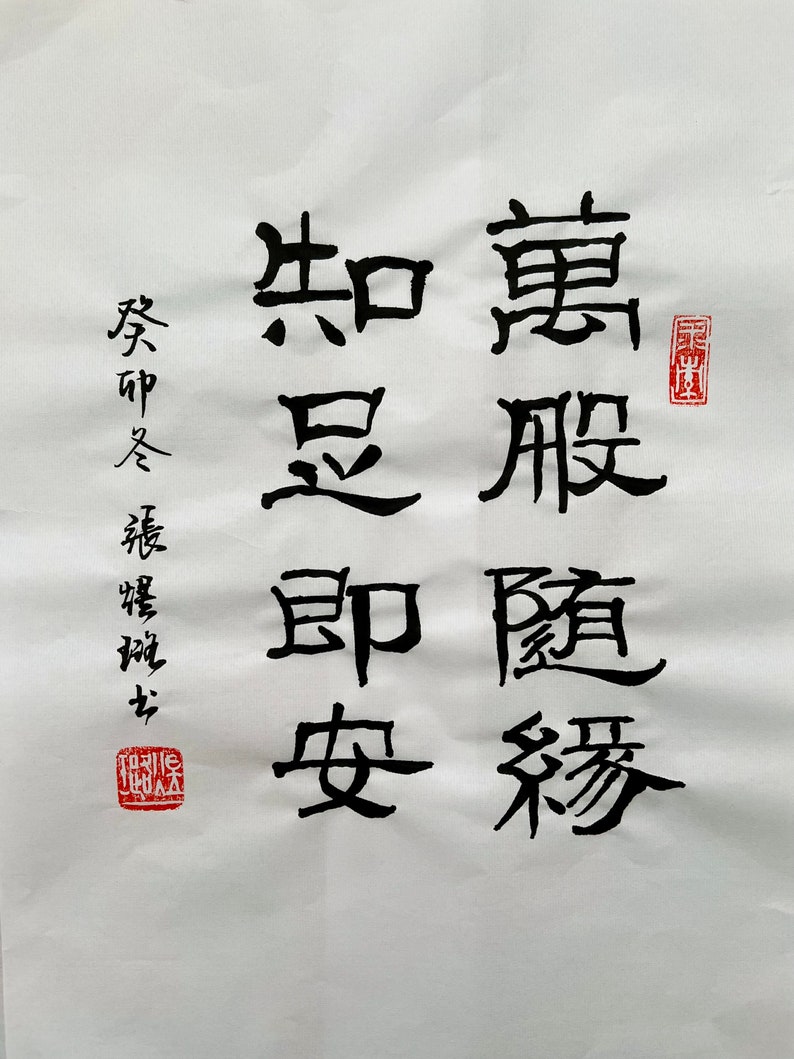 萬般随緣
知足即安
癸卯冬 張璐书